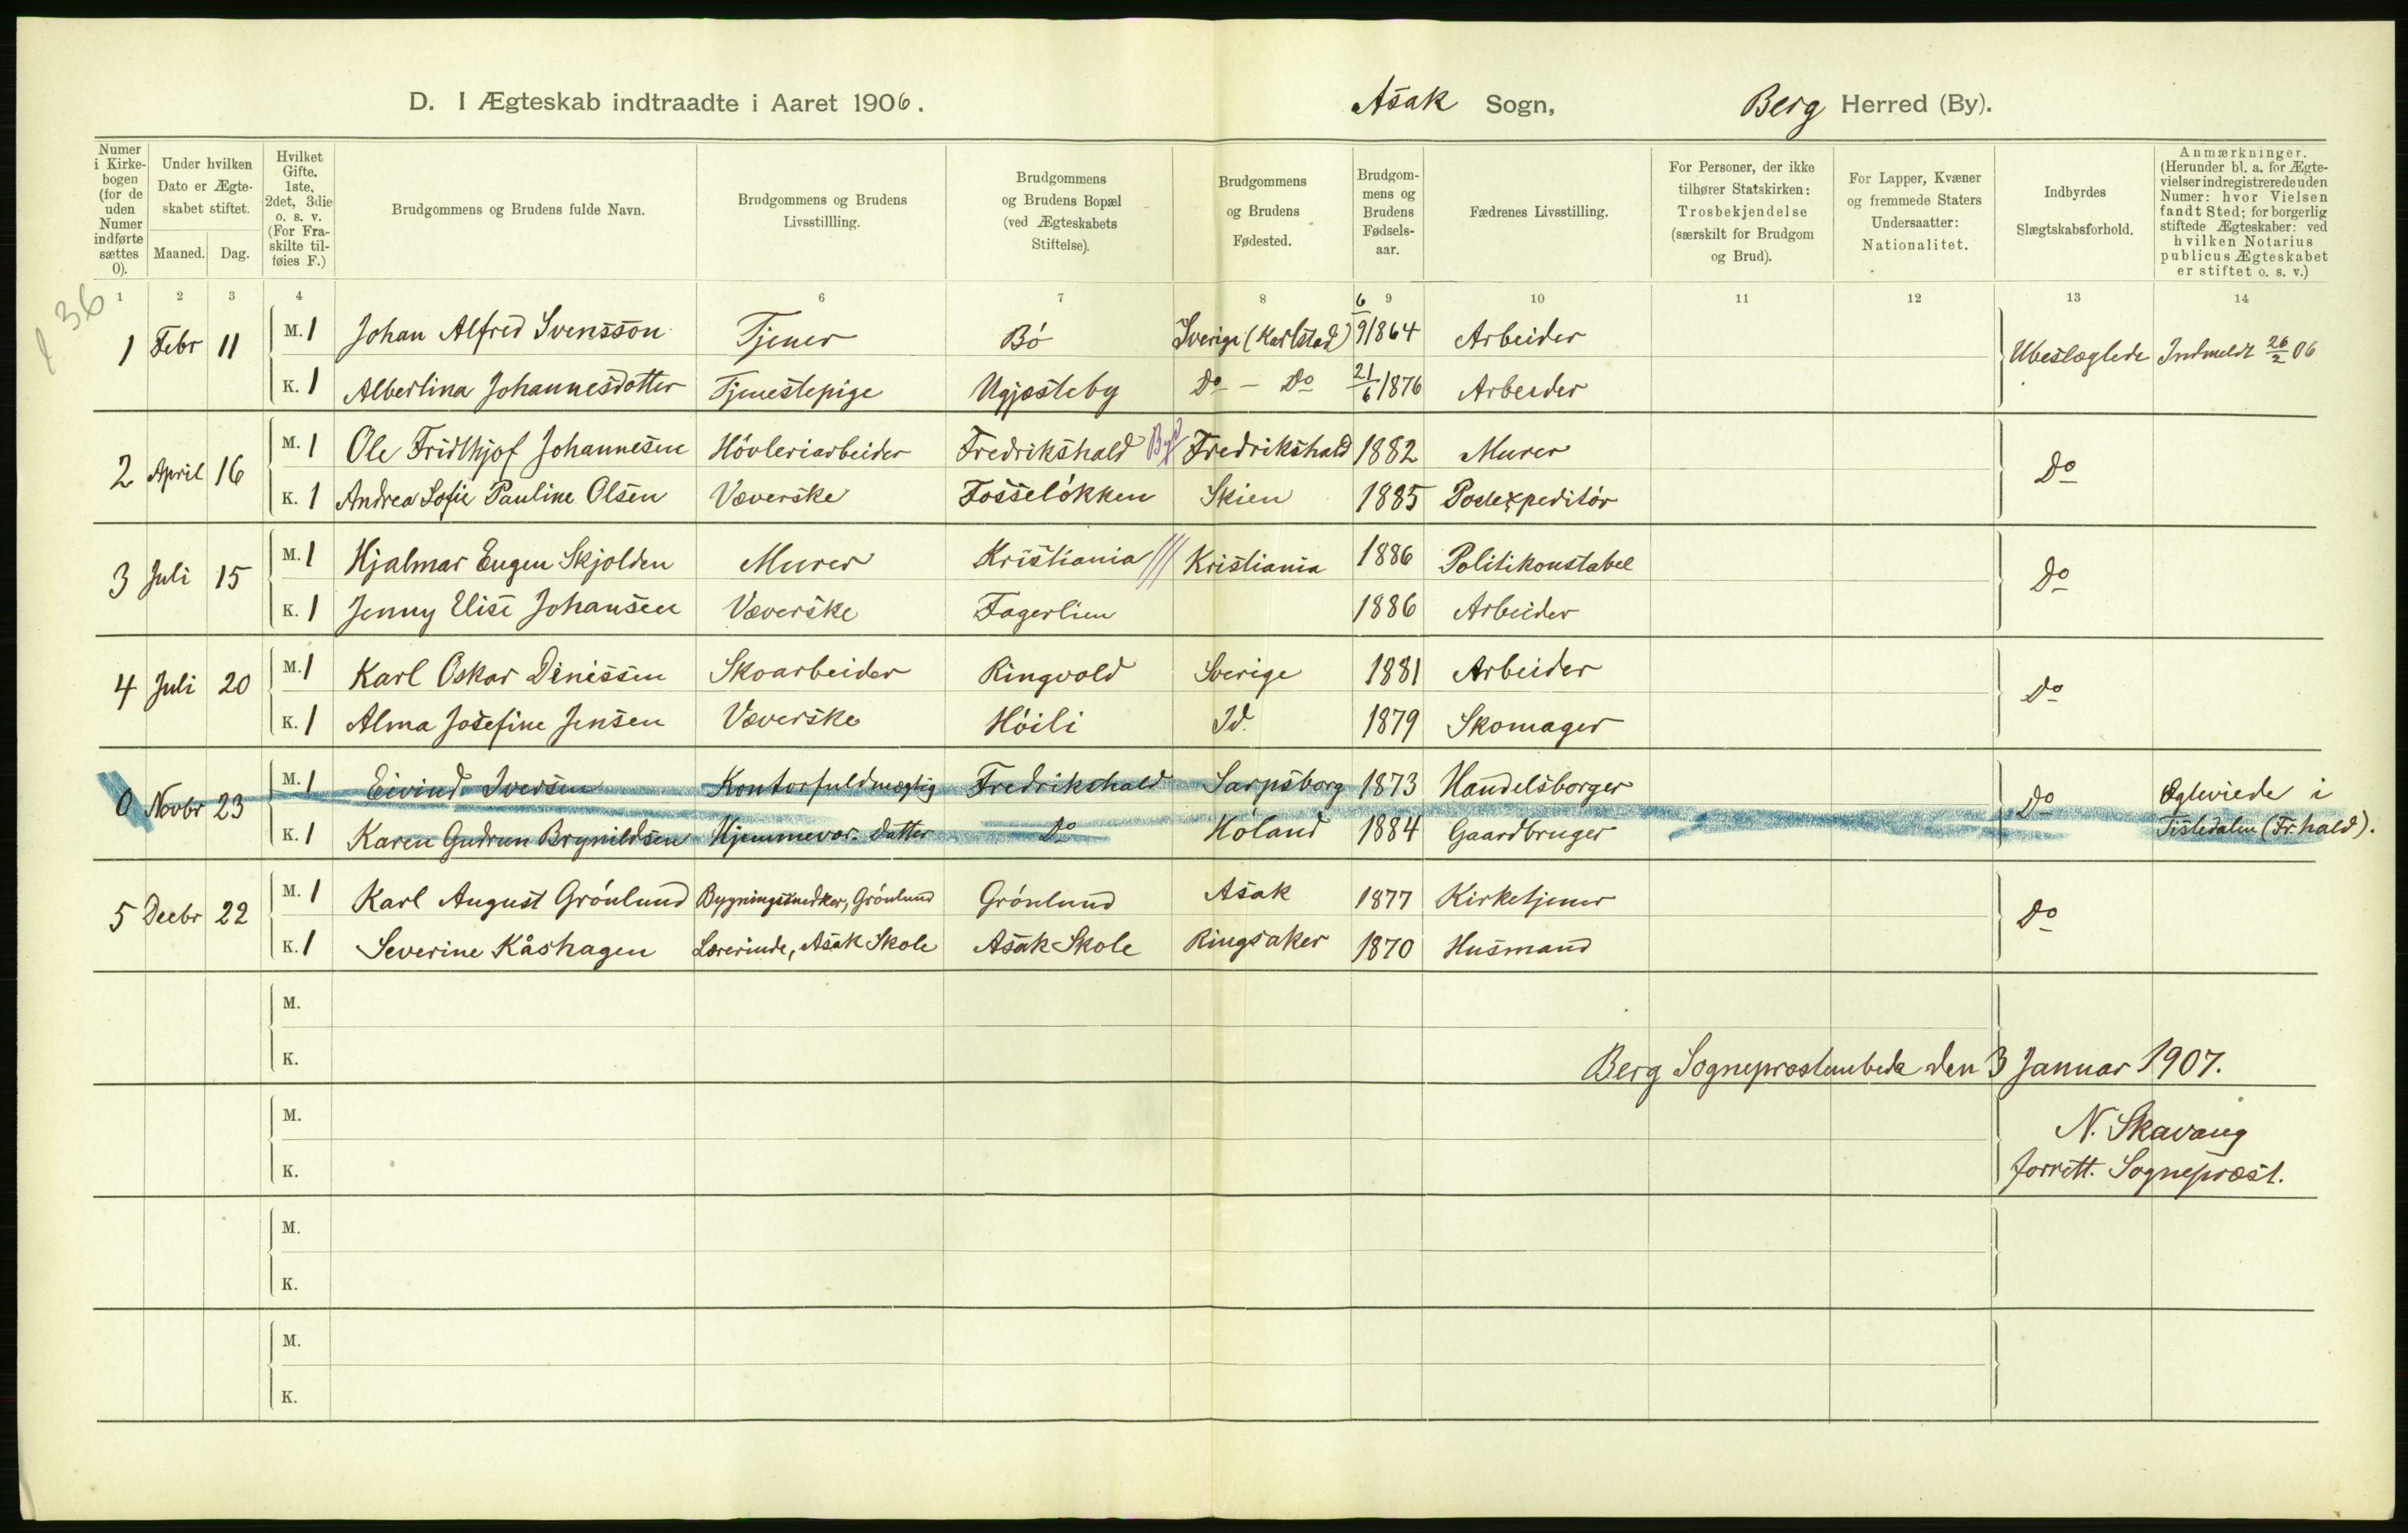 D. I Ægteskab indtraadte i Aaret 1906. Asak Sogn, Berg Herred (By).
Numer i Kirkebogen (for de uden Numer indførte sættes 0).
Under hvilken Dato er Ægteskabet stiftet.
Maaned. Dag.
Hvilket Gifte. 1ste, 2det, 3die o. s. v. (For Fraskilte tilføies F.)
Brudgommens og Brudens fulde Navn.
Brudgommens og Brudens Livsstillling.
Brudgommens og Brudens Bopæl (ved Ægteskabets Stiftelse).
Brudgommens og Brudens Fødested.
Brudgommens og Brudens Fødselsaar.
Fædrenes Livsstilling.
For Personer, der ikke tilhører Statskirken: Trosbekjendelse (særskilt for Brudgom og Brud).
For Lapper, Kvæner og fremmede Staters Undersaatter: Nationalitet.
Indbyrdes Slægtskabsforhold.
Anmærkninger. (Herunder bl. a. for Ægtevielser indregistrerede uden Numer: hvor Vielsen fandt Sted; for borgerlig stiftede Ægteskaber: ved hvilken Notarius publicus Ægteskabet er stiftet o. s. v.)
1 2 3 4 6 7 8 9 10 11 12 13 14
36
1 Febr 11 M. 1 Johan Alfred Svensson Tjener Bö Sverige (Karlstad) 6/9 1864 Arbeider Ubeslægtede Indmeldt 26/2 06
K. 1 Albertina Johannesdotter Tjenestepige Ugjesteby Do - Do 21/6 1876 Arbeider
2 April 16 M. 1 Ole Fridthjof Johannesen Hövleriarbeider Fredrikshald By Fredrikshald 1882 Murer Do
K. 1 Andrea Sofie Pauline Olsen Væverske Fosselökken Skien 1885 Postexpeditör
3 Juli 15 M. 1 Hjalmar Eugen Skjolden Murer Kristiania Kristiania 1886 Politikonstabel Do
K. 1 Jenny Elise Johansen Væverske Fagerlien 1886 Arbeider
4 Juli 20 M. 1 Karl Oskar Dinissen Skoarbeider Ringvold Sverige 1881 Arbeider Do
K. 1 Alma Josefine Jensen Væverske Höili Id. 1879 Skomager
0 Novbr 23 M. 1 Eivind Iversen Kontorfuldmægtig Fredrikshald Sarpsborg 1873 Handelsborger Do Ægteviede i
K. 1 Karen Gudrun Brynildsen Hjemmevær. Datter Do Höland 1884 Gaardbruger Tistedalen (Fr.hald).
5 Decbr 22 M. 1 Karl August Grönlund Bygningssnedker, Grönlund Grönlund Asak 1877 Kirketjener Do
K. 1 Severine Kåshagen Lærerinde, Asak Skole Asak Skole Ringsaker 1870 Husmand
M.
K.
Berg Sogneprestembede den 3 Januar 1907.
M.
N. Skavang
K.
forrett. Sogneprest.
M.
K.
M.
K.